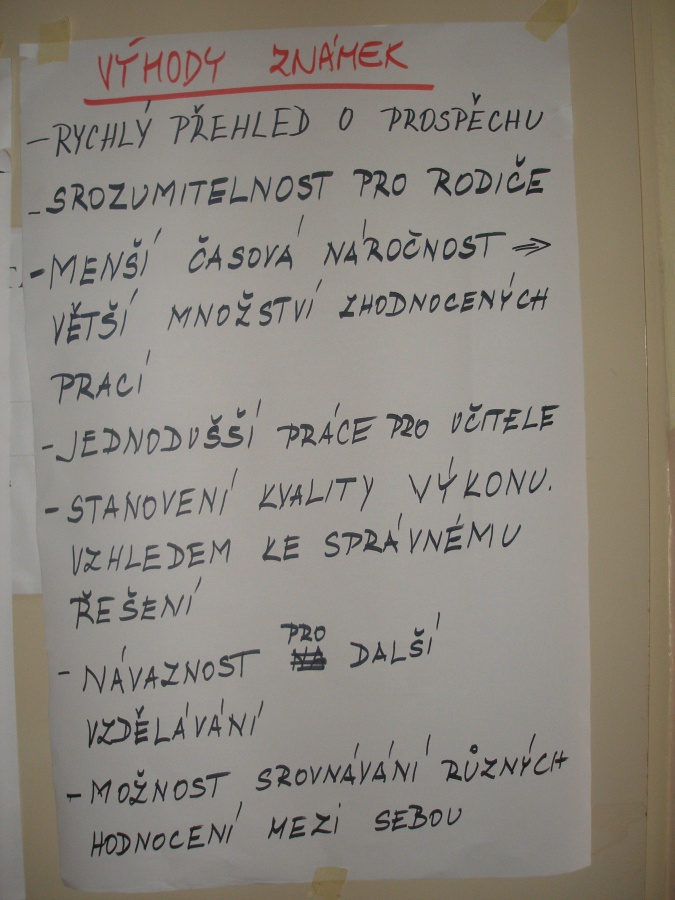 VÝHODY ZNÁMEK
- RYCHLÝ PŘEHLED O PROSPĚCHU
- SROZUMITELNOST PRO RODIČE
- MENŠÍ ČASOVÁ NÁROČNOST ⇒
VĚTŠÍ MNOŽSTVÍ ZHODNOCENÝCH
PRACÍ
- JEDNODUŠŠÍ PRÁCE PRO UČITELE
- STANOVENÍ KVALITY VÝKONU.
VZHLEDEM KE SPRÁVNÉMU
ŘEŠENÍ
- NÁVAZNOST PRO DALŠÍ
VZDĚLÁVÁNÍ
- MOŽNOST SROVNÁVÁNÍ RŮZNÝCH
HODNOCENÍ MEZI SEBOU